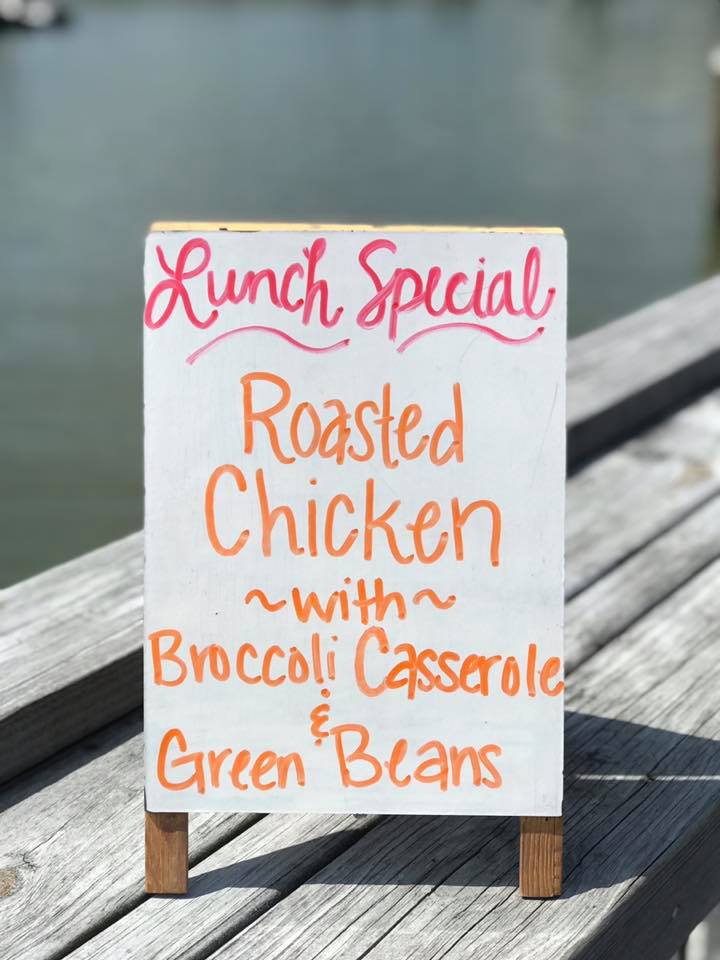 Lunch Special
Roasted
Chicken
~with~
Broccoli Casserole
&
Green Beans